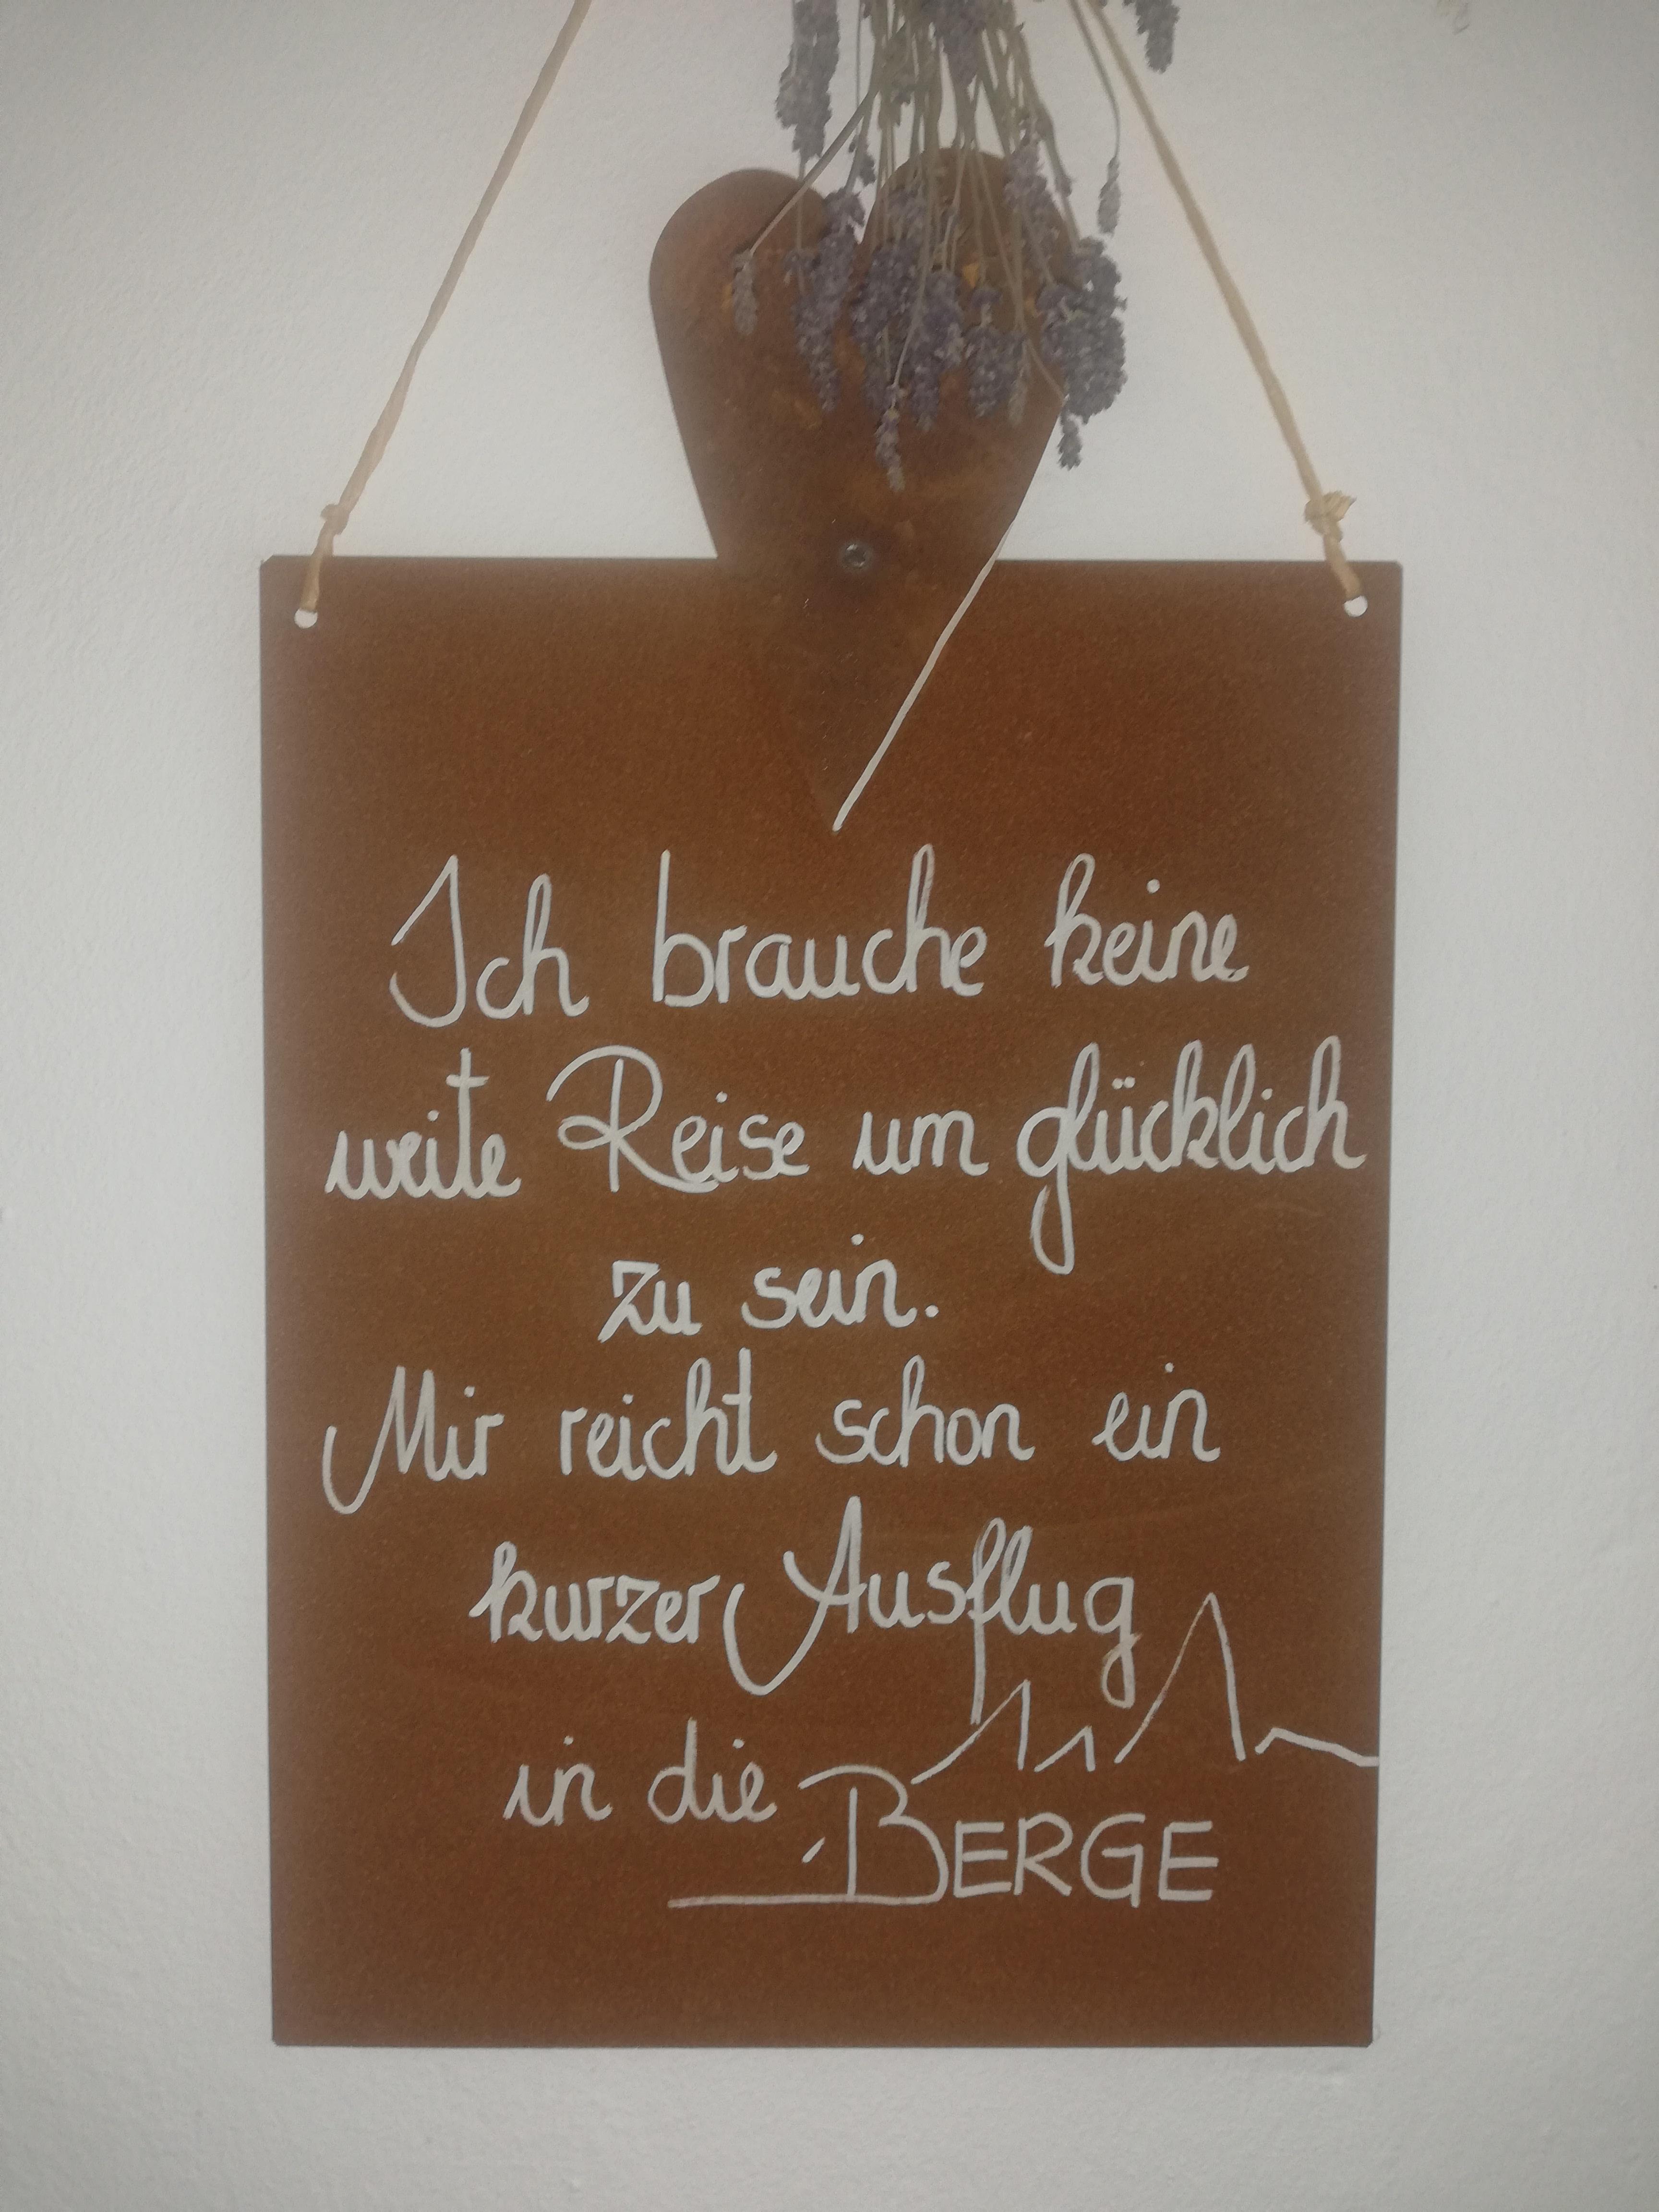 Ich brauche keine
weite Reise um glücklich
zu sein.
Mir reicht schon ein
kurzer Ausflug
in die BERGE